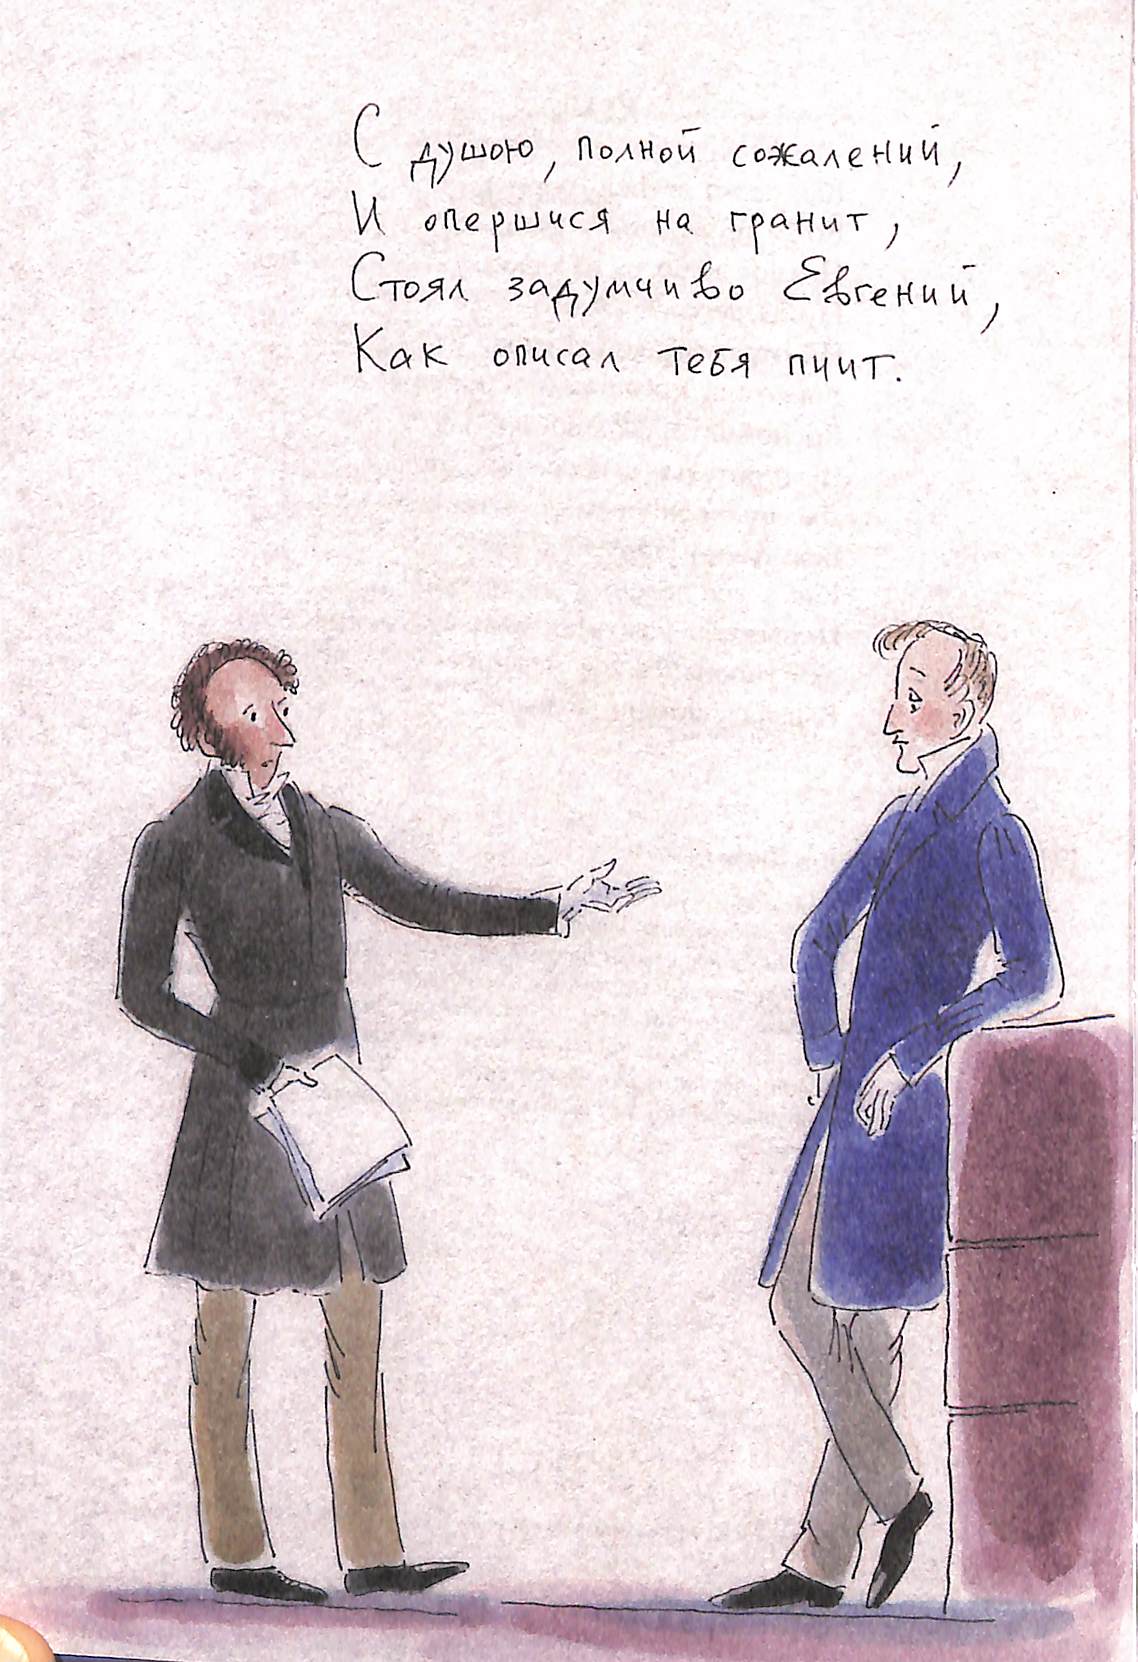 С душою, полной сожалений,
И опершися на гранит,
Стоял задумчиво Евгений,
Как описал тебя пиит.